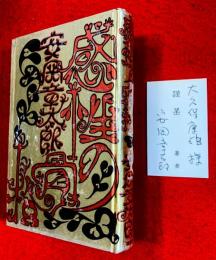 感性の骨
安岡章太郎
大久保房男様
謹呈 著者
安岡章太郎